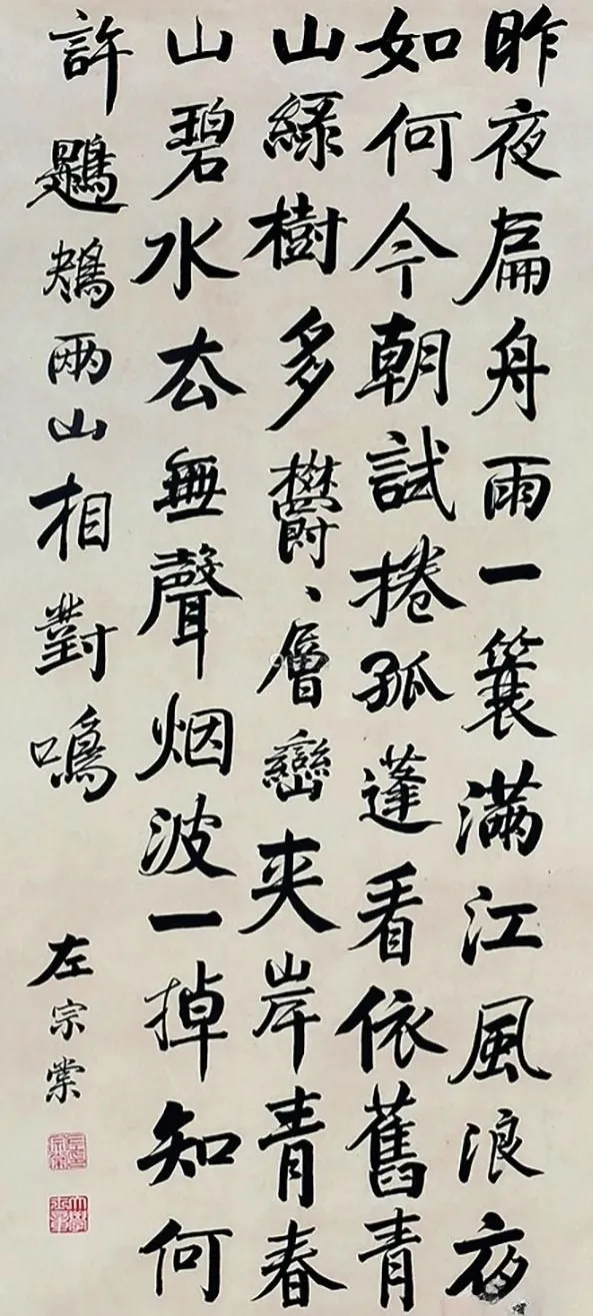 昨夜扁舟雨一簑滿江風浪夜
如何今朝試捲孤蓬看依舊青
山綠樹多鬱、層巒夾岸青春
山碧水去無聲烟波一掉知何
許鶗鴂兩山相對鳴
左宗棠